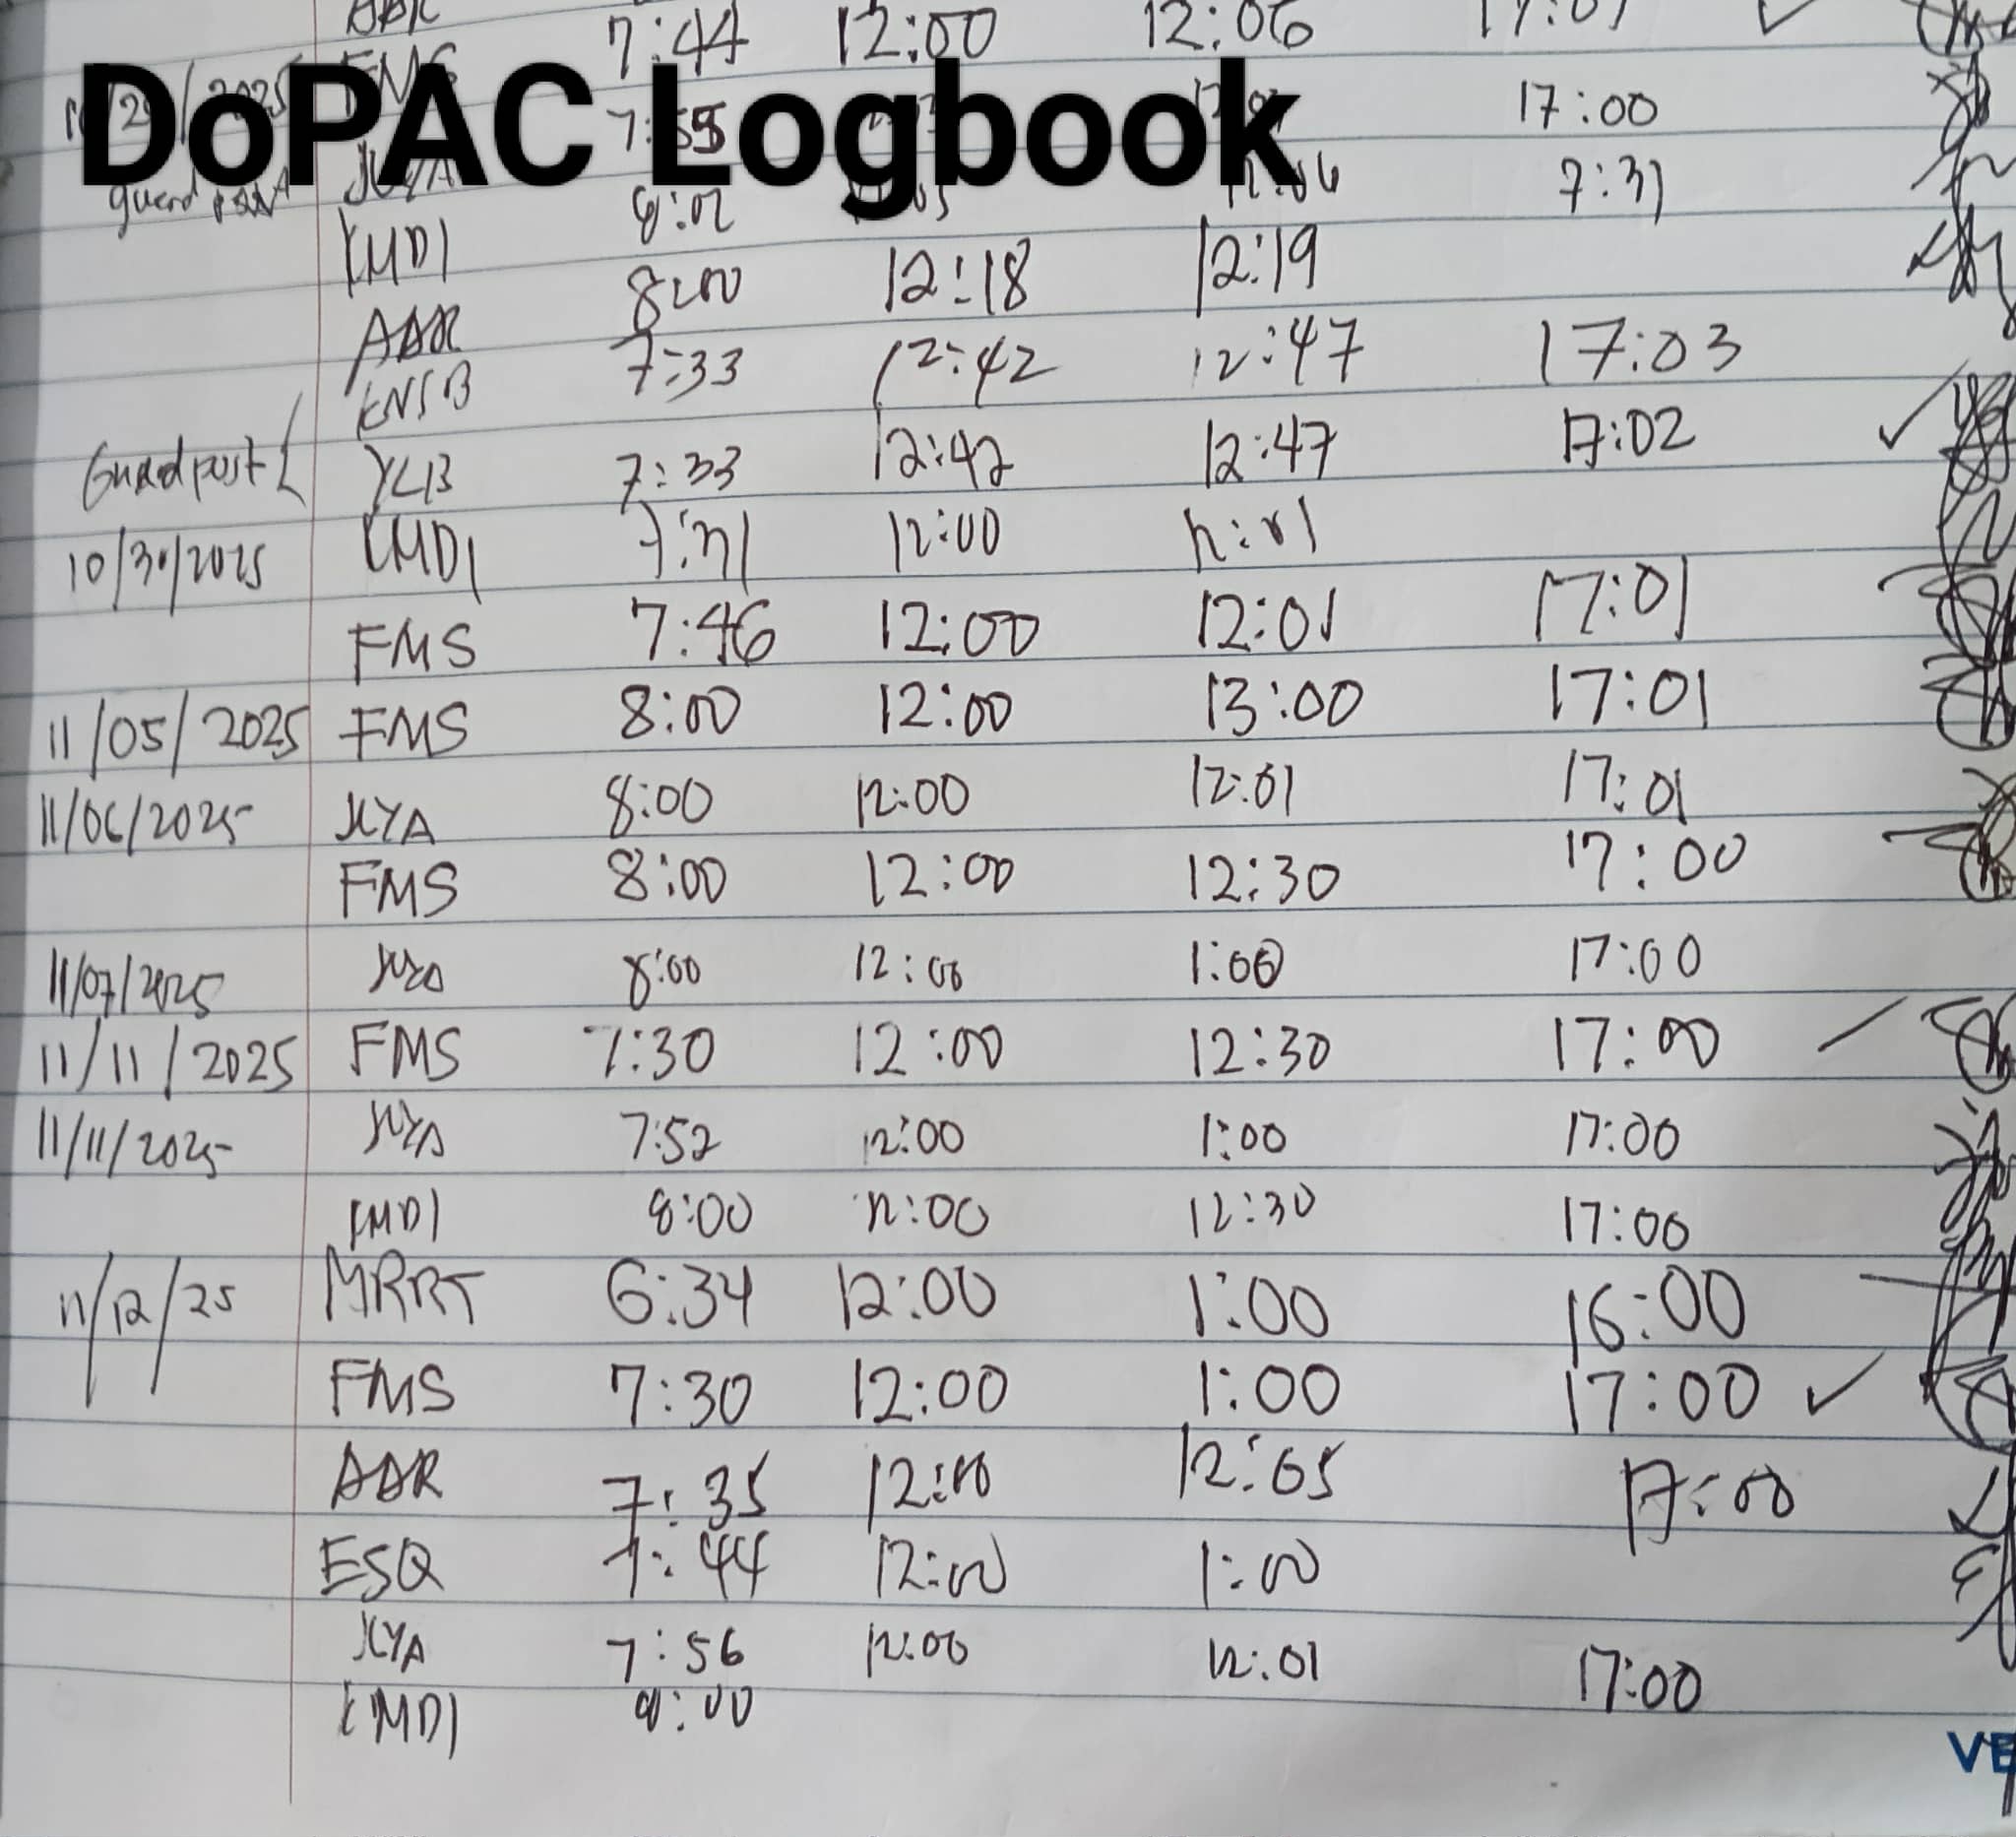 7:44 12:00 12:06
DoPAC Logbook
17:00
7:31
KMDI 8:00 12:18 12:19
AAR 7:33 12:42 12:47 17:03
ENSB
Guard post YLB 7:33 12:42 12:47 17:02
10/30/2025 KMDI 12:00
FMS 7:46 12:00 12:01 17:01
11/05/2025 FMS 8:00 12:00 13:00 17:01
11/06/2025 JCYA 8:00 12:00 12:01 17:01
FMS 8:00 12:00 12:30 17:00
11/07/2025 8:00 12:00 1:00 17:00
11/11/2025 FMS 7:30 12:00 12:30 17:00
11/11/2025 7:52 12:00 1:00 17:00
KMDI 8:00 12:00 12:30 17:00
11/12/25 MRRT 6:34 12:00 1:00 16:00
FMS 7:30 12:00 1:00 17:00
AAR 7:35 12:00 12:05 17:00
ESQ 7:44 12:00 1:00
JCYA 7:56 12:00 12:01 17:00
KMDI 8:00